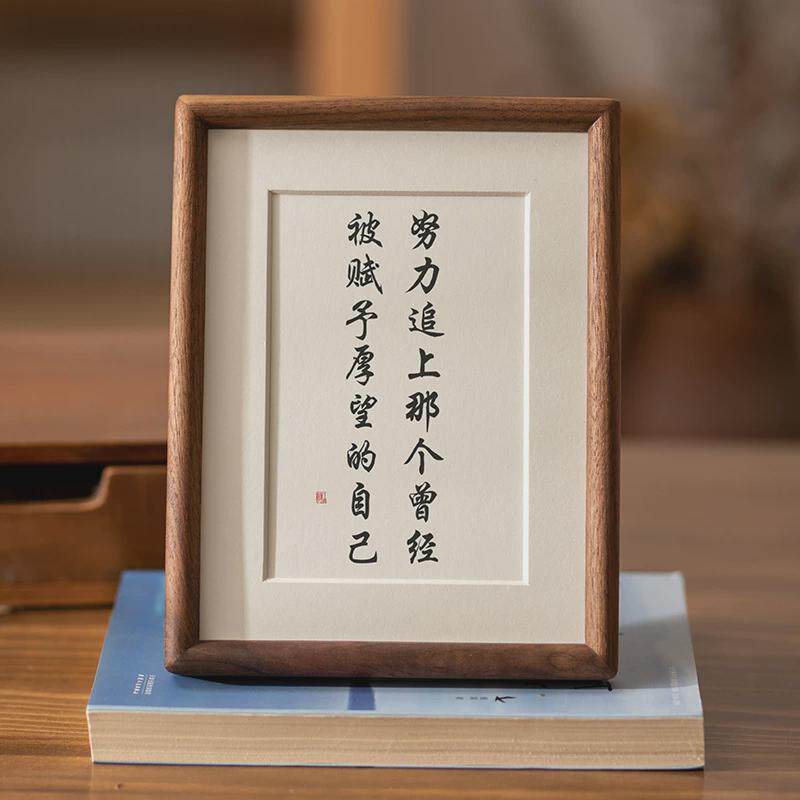 努力追上那个曾经
被赋予厚望的自己